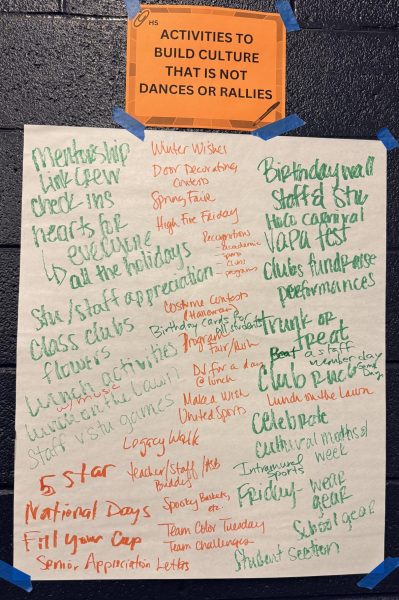 HS
ACTIVITIES TO
BUILD CULTURE
THAT IS NOT
DANCES OR RALLIES
Mentorship
Link Crew
check ins
hearts for
everyone
↳ all the holidays
Stu/staff appreciation
Class clubs
flowers
Lunch activities
w/ music
lunch on the lawn
Staff v stu games
Winter Wishes
Door Decorating
Contests
Spring Fair
High Five Friday
Recognitions
- academic
- sports
- clubs
- programs
Costume Contest
(Halloween)
Birthday cards for
all students
Program
Fair/Rush
DJ for a day
@ lunch
Make a Wish
United Sports
Legacy Walk
Birthday wall
Staff & Stu
Hoco carnival
VAPA fest
Clubs fundraise
performances
Trunk or
treat
a staff
member day
Club Rush
Lunch on the Lawn
Celebrate
cultural months of
week
Intramural
sports
Friday wear
gear
School gear
Student section
5 Star
National Days
Fill your Cup
Senior Appreciation Letters
Teacher/Staff/ASB
Buddy
Spooky Baskets,
etc.
Team Color Tuesday
Team challenges